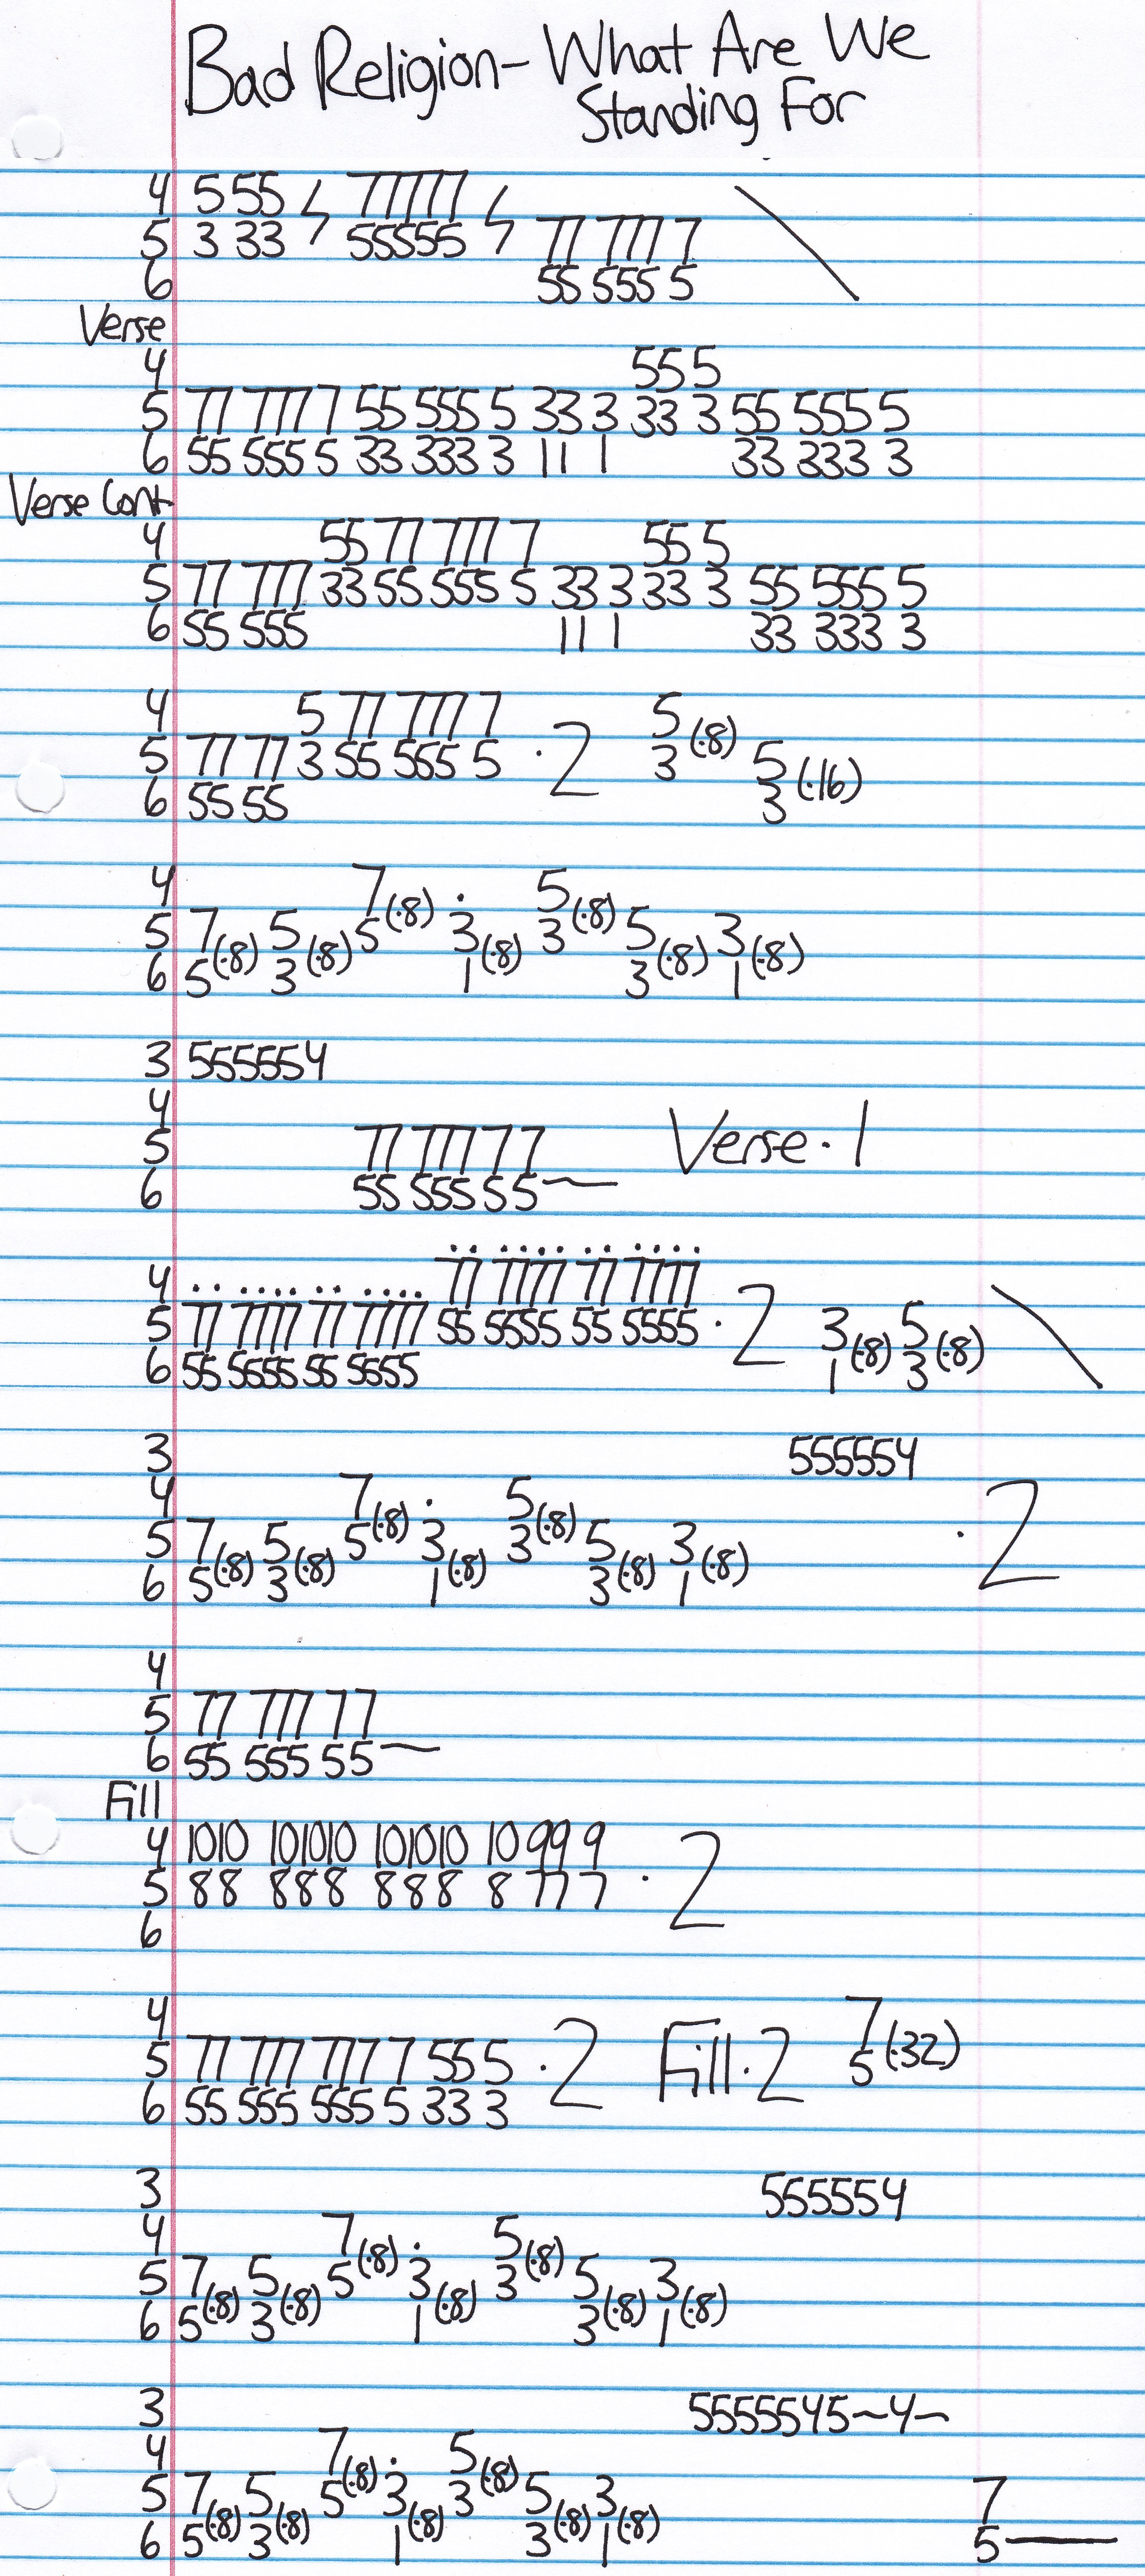 Bad Religion- What Are We
Standing For
4 5 55 77777
5 3 33 55555 77 777 7
6 55 555 5
Verse
4 55 5
5 77 777 7 55 555 5 33 3 33 3 55 555 5
6 55 555 5 33 333 3 11 1 33 333 3
Verse Cont
4 55 77 777 7 55 5
5 77 777 33 55 555 5 33 3 33 3 55 555 5
6 55 555 11 1 33 333 3
4 5 77 777 7 5
5 77 77 3 55 555 5 ·2 3 (·8) 5
6 55 55 3 (·16)
4 7 (·8) · 5 (·8)
5 7 (·8) 5 (·8) 5 3 (·8) 3 5 (·8) 3 (·8)
6 5 3 1 3 1
3 555554
4
5 77 777 77 Verse·1
6 55 555 55~
4 .. .... .. .... 77 7777 77 7777
5 77 7777 77 7777 55 5555 55 5555 ·2 3 (·8) 5 (·8)
6 55 5555 55 5555 1 3
3 555554
4 7 (·8) · 5 (·8) ·2
5 7 (·8) 5 (·8) 5 3 (·8) 3 5 (·8) 3 (·8)
6 5 3 1 3 1
4
5 77 777 77
6 55 555 55~
Fill
4 1010 101010 101010 10 99 9
5 88 888 888 8 77 7 ·2
6
4 7
5 77 777 777 7 55 5 ·2 Fill·2 5 (·32)
6 55 555 555 5 33 3
3 555554
4 7 (·8) · 5 (·8)
5 7 (·8) 5 (·8) 5 3 (·8) 3 5 (·8) 3 (·8)
6 5 3 1 3 1
3 5555545~4~
4 7 (·8) · 5 (·8)
5 7 (·8) 5 (·8) 5 3 (·8) 3 5 (·8) 3 (·8) 7
6 5 3 1 3 1 5—